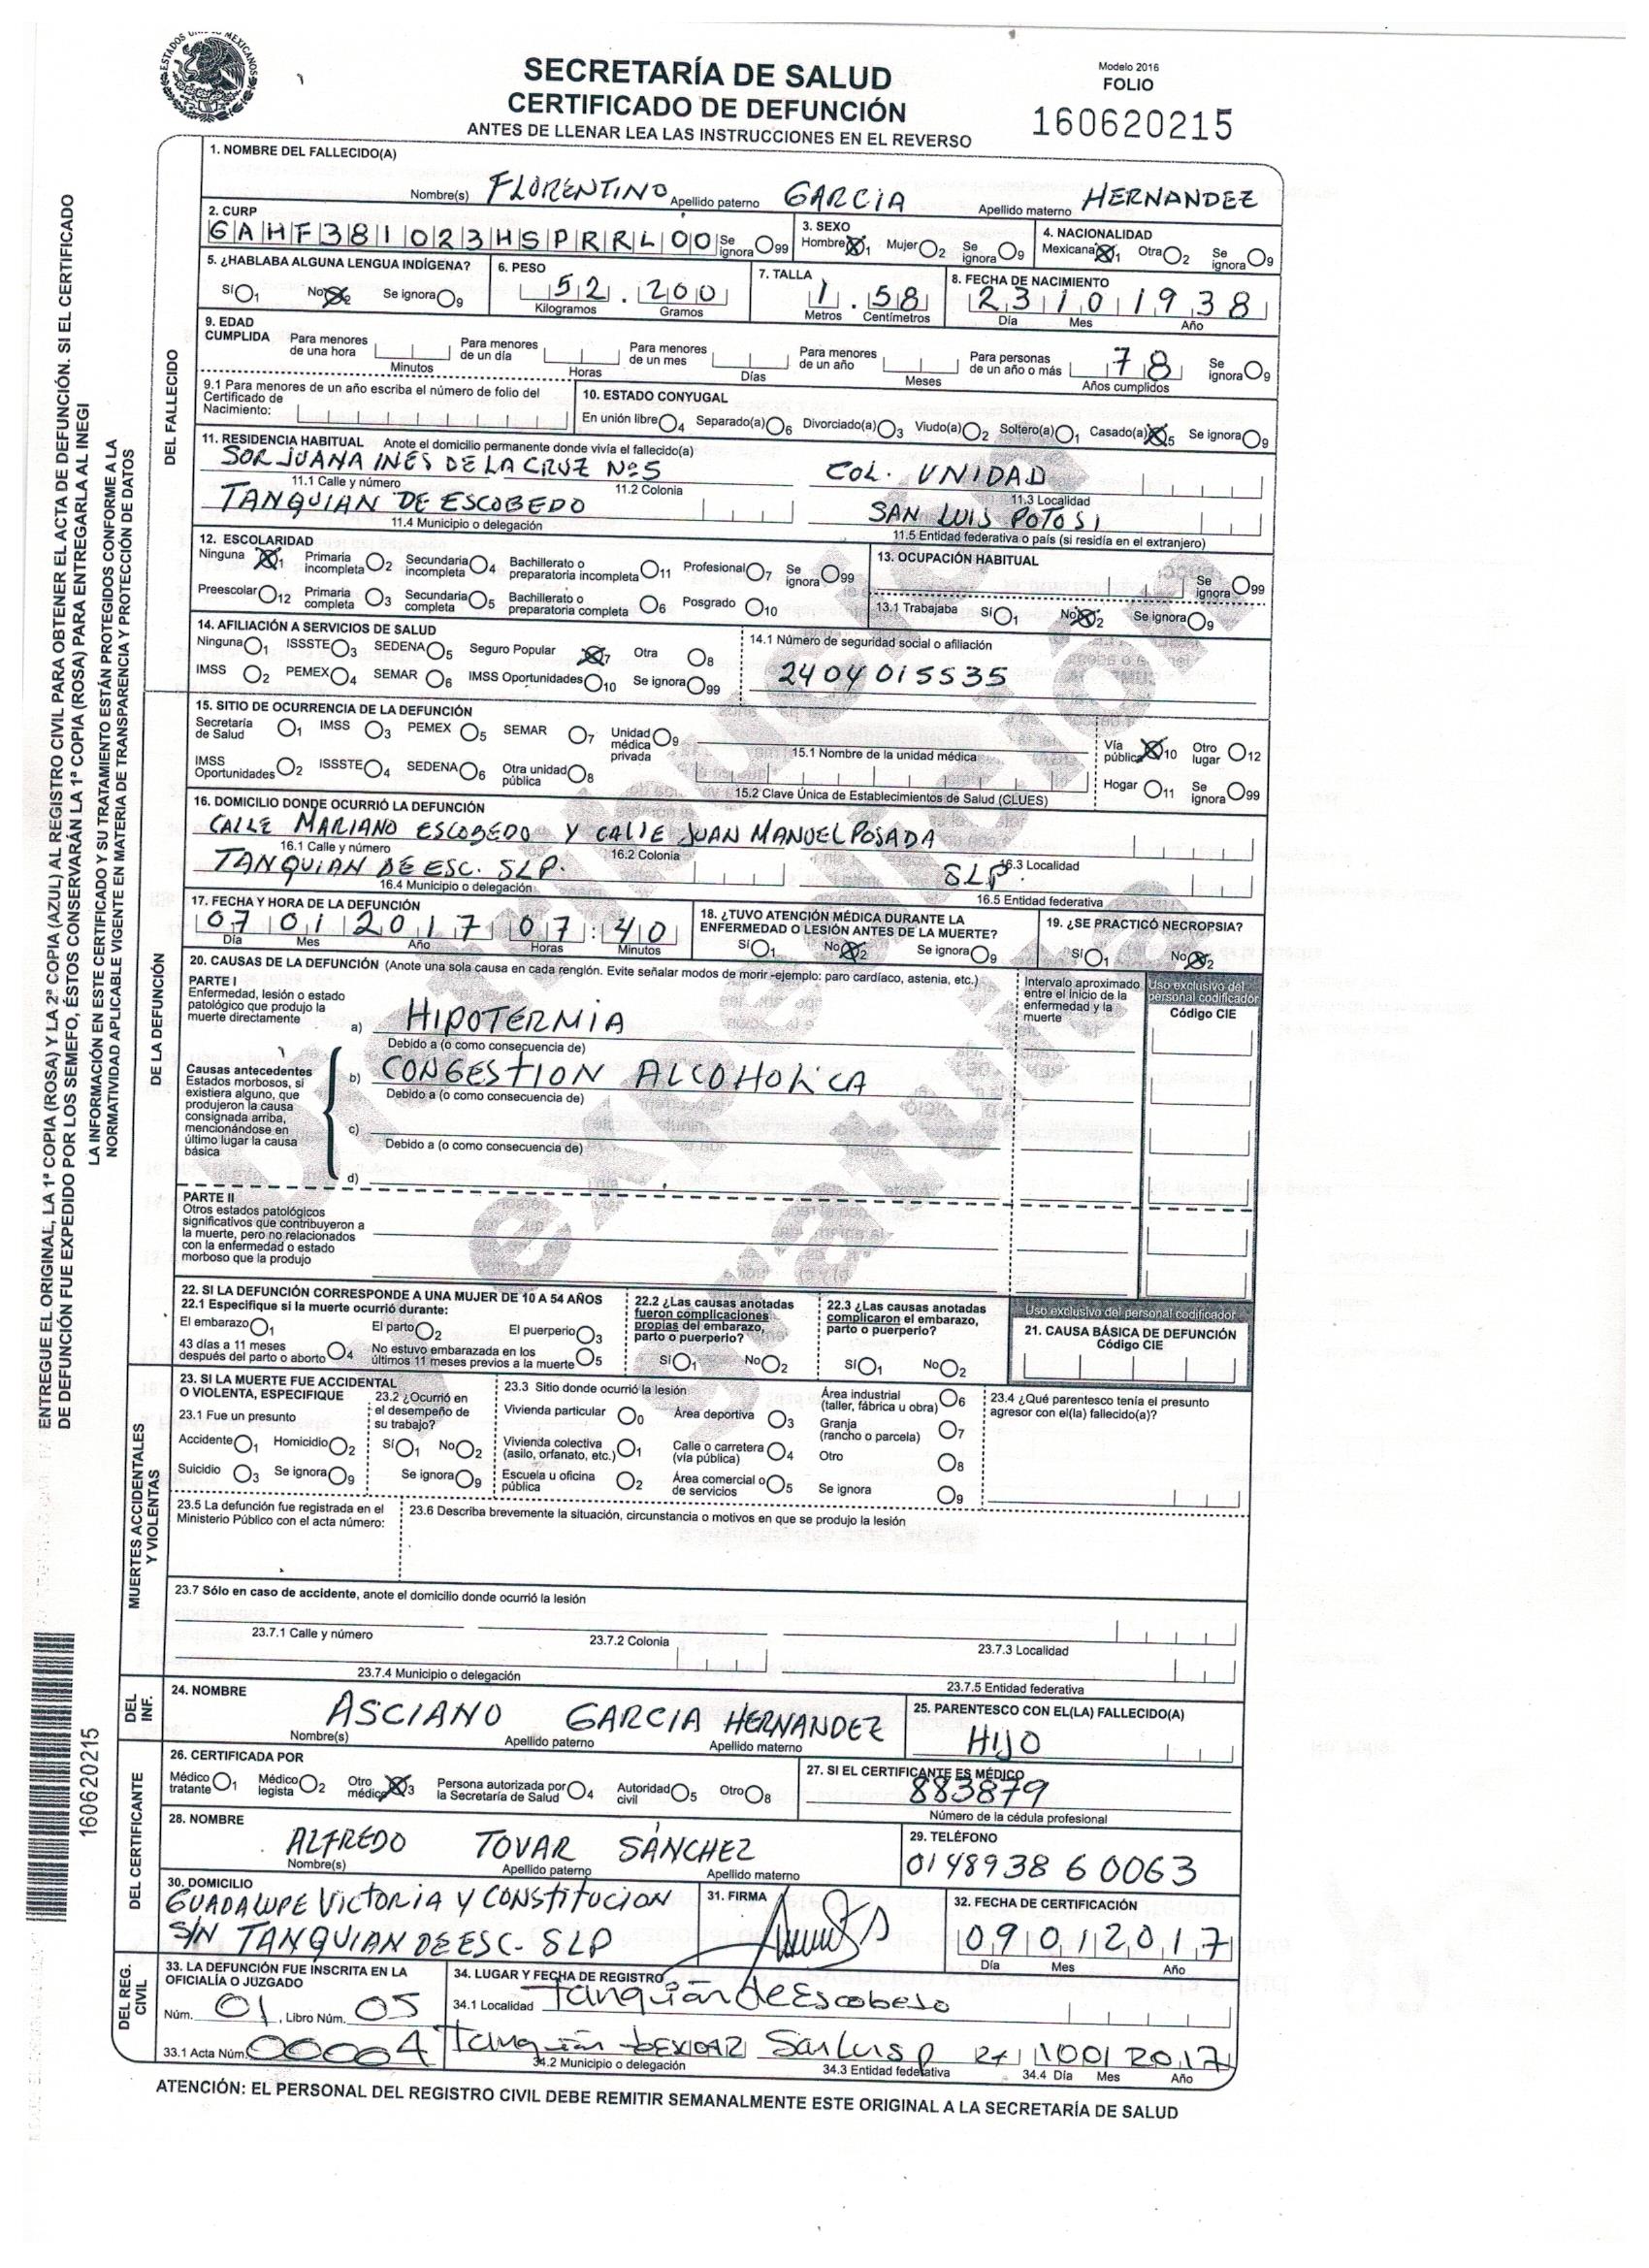 ESTADOS UNIDOS MEXICANOS
SECRETARÍA DE SALUD
CERTIFICADO DE DEFUNCIÓN
ANTES DE LLENAR LEA LAS INSTRUCCIONES EN EL REVERSO
Modelo 2016
FOLIO
160620215
ENTREGUE EL ORIGINAL, LA 1ª COPIA (ROSA) Y LA 2ª COPIA (AZUL) AL REGISTRO CIVIL PARA OBTENER EL ACTA DE DEFUNCIÓN. SI EL CERTIFICADO
DE DEFUNCIÓN FUE EXPEDIDO POR LOS SEMEFO, ÉSTOS CONSERVARÁN LA 1ª COPIA (ROSA) PARA ENTREGARLA AL INEGI
LA INFORMACIÓN EN ESTE CERTIFICADO Y SU TRATAMIENTO ESTÁN PROTEGIDOS CONFORME A LA
NORMATIVIDAD APLICABLE VIGENTE EN MATERIA DE TRANSPARENCIA Y PROTECCIÓN DE DATOS
160620215
DEL FALLECIDO
1. NOMBRE DEL FALLECIDO(A)
Nombre(s) FLORENTINO Apellido paterno GARCIA Apellido materno HERNANDEZ
2. CURP
GAHF381023HSPRRL00 Se ignora 99
3. SEXO
Hombre 1 Mujer 2 Se ignora 9
4. NACIONALIDAD
Mexicana 1 Otra 2 Se ignora 9
5. ¿HABLABA ALGUNA LENGUA INDÍGENA?
Sí 1 No 2 Se ignora 9
6. PESO
52.200
Kilogramos Gramos
7. TALLA
1.58
Metros Centímetros
8. FECHA DE NACIMIENTO
23 10 1938
Día Mes Año
9. EDAD CUMPLIDA
Para menores de una hora Minutos
Para menores de un día Horas
Para menores de un mes Días
Para menores de un año Meses
Para personas de un año o más 78 Años cumplidos
Se ignora 9
9.1 Para menores de un año escriba el número de folio del Certificado de Nacimiento:
10. ESTADO CONYUGAL
En unión libre 4 Separado(a) 6 Divorciado(a) 3 Viudo(a) 2 Soltero(a) 1 Casado(a) 5 Se ignora 9
11. RESIDENCIA HABITUAL Anote el domicilio permanente donde vivía el fallecido(a)
SOR JUANA INES DE LA CRUZ Nº5 COL. UNIDAD
11.1 Calle y número 11.2 Colonia 11.3 Localidad
TANQUIAN DE ESCOBEDO SAN LUIS POTOSI
11.4 Municipio o delegación 11.5 Entidad federativa o país (si residía en el extranjero)
12. ESCOLARIDAD
Ninguna 1 Primaria incompleta 2 Secundaria incompleta 4 Bachillerato o preparatoria incompleta 11 Profesional 7 Se ignora 99
Preescolar 12 Primaria completa 3 Secundaria completa 5 Bachillerato o preparatoria completa 6 Posgrado 10
13. OCUPACIÓN HABITUAL
Se ignora 99
13.1 Trabajaba Sí 1 No 2 Se ignora 9
14. AFILIACIÓN A SERVICIOS DE SALUD
Ninguna 1 ISSSTE 3 SEDENA 5 Seguro Popular 7 Otra 8
IMSS 2 PEMEX 4 SEMAR 6 IMSS Oportunidades 10 Se ignora 99
14.1 Número de seguridad social o afiliación
2404015535
DE LA DEFUNCIÓN
15. SITIO DE OCURRENCIA DE LA DEFUNCIÓN
Secretaría de Salud 1 IMSS 3 PEMEX 5 SEMAR 7 Unidad médica privada 9
15.1 Nombre de la unidad médica
Vía pública 10 Otro lugar 12
IMSS Oportunidades 2 ISSSTE 4 SEDENA 6 Otra unidad pública 8
15.2 Clave Única de Establecimientos de Salud (CLUES)
Hogar 11 Se ignora 99
16. DOMICILIO DONDE OCURRIÓ LA DEFUNCIÓN
CALLE MARIANO ESCOBEDO Y CALLE JUAN MANUEL POSADA
16.1 Calle y número 16.2 Colonia 16.3 Localidad
TANQUIAN DE ESC. SLP. SLP.
16.4 Municipio o delegación 16.5 Entidad federativa
17. FECHA Y HORA DE LA DEFUNCIÓN
07 01 2017 07:40
Día Mes Año Horas Minutos
18. ¿TUVO ATENCIÓN MÉDICA DURANTE LA ENFERMEDAD O LESIÓN ANTES DE LA MUERTE?
Sí 1 No 2 Se ignora 9
19. ¿SE PRACTICÓ NECROPSIA?
Sí 1 No 2
20. CAUSAS DE LA DEFUNCIÓN (Anote una sola causa en cada renglón. Evite señalar modos de morir -ejemplo: paro cardíaco, astenia, etc.)
PARTE I
Enfermedad, lesión o estado patológico que produjo la muerte directamente
a) HIPOTERMIA
Debido a (o como consecuencia de)
Causas antecedentes
Estados morbosos, si existiera alguno, que produjeron la causa consignada arriba, mencionándose en último lugar la causa básica
b) CONGESTION ALCOHOLICA
Debido a (o como consecuencia de)
c)
Debido a (o como consecuencia de)
d)
Intervalo aproximado entre el inicio de la enfermedad y la muerte
Uso exclusivo del personal codificador
Código CIE
PARTE II
Otros estados patológicos significativos que contribuyeron a la muerte, pero no relacionados con la enfermedad o estado morboso que la produjo
Distribución y expedición gratuita
22. SI LA DEFUNCIÓN CORRESPONDE A UNA MUJER DE 10 A 54 AÑOS
22.1 Especifique si la muerte ocurrió durante:
El embarazo 1 El parto 2 El puerperio 3
43 días a 11 meses después del parto o aborto 4 No estuvo embarazada en los últimos 11 meses previos a la muerte 5
22.2 ¿Las causas anotadas fueron complicaciones propias del embarazo, parto o puerperio?
Sí 1 No 2
22.3 ¿Las causas anotadas complicaron el embarazo, parto o puerperio?
Sí 1 No 2
Uso exclusivo del personal codificador
21. CAUSA BÁSICA DE DEFUNCIÓN
Código CIE
MUERTES ACCIDENTALES Y VIOLENTAS
23. SI LA MUERTE FUE ACCIDENTAL O VIOLENTA, ESPECIFIQUE
23.1 Fue un presunto
Accidente 1 Homicidio 2
Suicidio 3 Se ignora 9
23.2 ¿Ocurrió en el desempeño de su trabajo?
Sí 1 No 2
Se ignora 9
23.3 Sitio donde ocurrió la lesión
Vivienda particular 0 Área deportiva 3 Área industrial (taller, fábrica u obra) 6
Vivienda colectiva (asilo, orfanato, etc.) 1 Calle o carretera (vía pública) 4 Granja (rancho o parcela) 7
Escuela u oficina pública 2 Área comercial o de servicios 5 Otro 8
Se ignora 9
23.4 ¿Qué parentesco tenía el presunto agresor con el(la) fallecido(a)?
23.5 La defunción fue registrada en el Ministerio Público con el acta número:
23.6 Describa brevemente la situación, circunstancia o motivos en que se produjo la lesión
23.7 Sólo en caso de accidente, anote el domicilio donde ocurrió la lesión
23.7.1 Calle y número 23.7.2 Colonia 23.7.3 Localidad
23.7.4 Municipio o delegación 23.7.5 Entidad federativa
DEL INF.
24. NOMBRE
ASCIANO GARCIA HERNANDEZ
Nombre(s) Apellido paterno Apellido materno
25. PARENTESCO CON EL(LA) FALLECIDO(A)
HIJO
DEL CERTIFICANTE
26. CERTIFICADA POR
Médico tratante 1 Médico legista 2 Otro médico 3 Persona autorizada por la Secretaría de Salud 4 Autoridad civil 5 Otro 8
27. SI EL CERTIFICANTE ES MÉDICO
883879
Número de la cédula profesional
28. NOMBRE
ALFREDO TOVAR SÁNCHEZ
Nombre(s) Apellido paterno Apellido materno
29. TELÉFONO
014893860063
30. DOMICILIO
GUADALUPE VICTORIA Y CONSTITUCION
S/N TANQUIAN DE ESC- SLP
31. FIRMA
32. FECHA DE CERTIFICACIÓN
09 01 2017
Día Mes Año
DEL REG. CIVIL
33. LA DEFUNCIÓN FUE INSCRITA EN LA OFICIALÍA O JUZGADO
Núm. 01, Libro Núm. 05
33.1 Acta Núm. 00004
34. LUGAR Y FECHA DE REGISTRO
34.1 Localidad Tanquián de Escobedo
Tanquián San Luis P 2017
34.2 Municipio o delegación 34.3 Entidad federativa 34.4 Día Mes Año
ATENCIÓN: EL PERSONAL DEL REGISTRO CIVIL DEBE REMITIR SEMANALMENTE ESTE ORIGINAL A LA SECRETARÍA DE SALUD